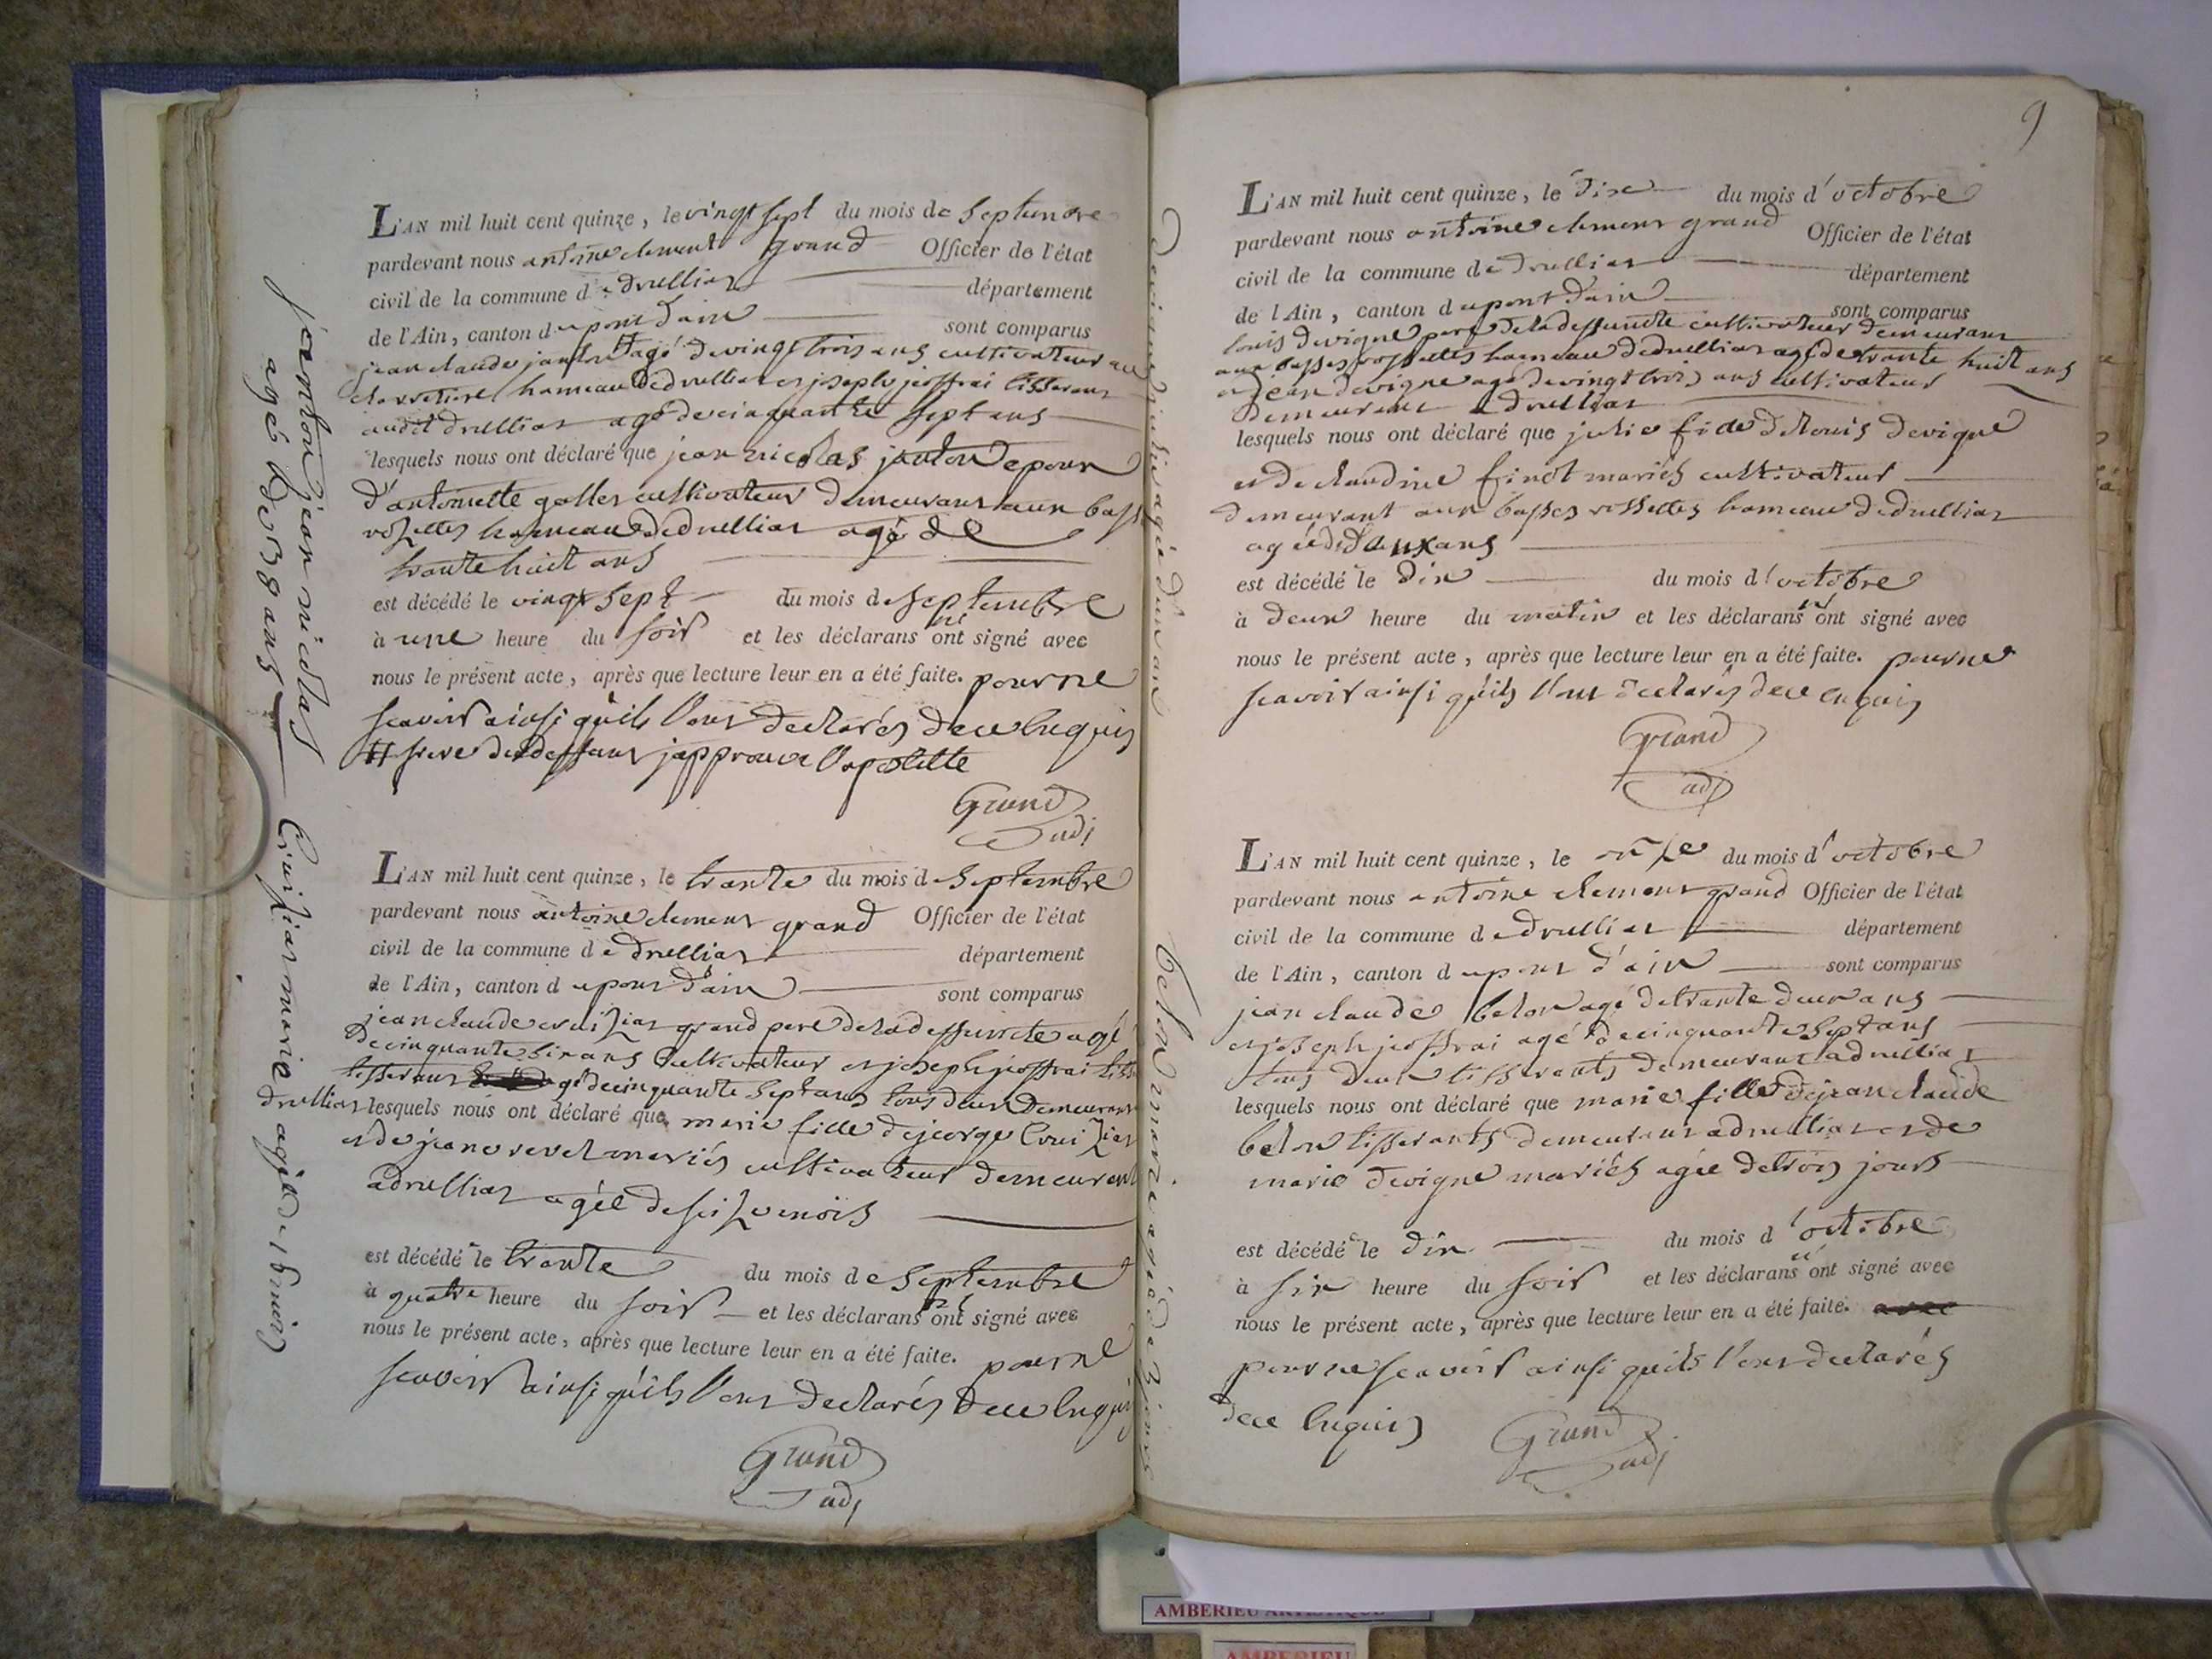 L'AN mil huit cent quinze, le vingt sept du mois de septembre
pardevant nous antoine clement grand Officier de l'état
civil de la commune de druilliat département
de l'Ain, canton du pont d'ain sont comparus
jean claude janton # agé de vingt trois ans cultivateur au
hameau de druilliat et joseph jeoffrai tisserant
audit druilliat agé de cinquante sept ans
lesquels nous ont déclaré que jean nicolas janton epoux
d'antoinette gallet cultivateur demeurant aux basses
rossettes hameau de druilliat agé de
trante huit ans
est décédé le vingt sept du mois de septembre
à une heure du soir et les déclarans n'ont signé avec
nous le présent acte, après que lecture leur en a été faite. pour ne
scavoir ainsi qu'ils l'ont declarés de ce enquis
# frere du deffunt j'approuve l'apostille
Grand
adj
janton jean nicolas
agé de 38 ans
L'AN mil huit cent quinze, le trante du mois de septembre
pardevant nous antoine clement grand Officier de l'état
civil de la commune de druilliat département
de l'Ain, canton du pont d'ain sont comparus
jean claude cruiziat grand pere de la deffuncte agé
de cinquante six ans cultivateur et joseph jeoffrai
tisserant agé de cinquante sept ans tous deux demeurant
druilliat lesquels nous ont déclaré que marie fille de jeorge cruiziat
et de jeane revel mariés cultivateur demeurant
a druilliat agée de seize mois
est décédé le trante du mois de septembre
à quatre heure du soir et les déclarans n'ont signé avec
nous le présent acte, après que lecture leur en a été faite. pour ne
scavoir ainsi qu'ils l'ont declarés de ce enquis
Grand
adj
Cruiziat marie agée de 16 mois
9
L'AN mil huit cent quinze, le dix du mois d'octobre
pardevant nous antoine clement grand Officier de l'état
civil de la commune de druilliat département
de l'Ain, canton du pont d'ain sont comparus
louis devigne pere de la deffuncte cultivateur demeurant
aux basses rossettes hameau de druilliat agé de trante huit ans
et jean devigne agé de vingt trois ans cultivateur
demeurant a druilliat
lesquels nous ont déclaré que julie fille de louis devigne
et de claudine finot mariés cultivateur
demeurant aux basses rossettes hameau de druilliat
agée d'deux ans
est décédé le dix du mois d'octobre
à deux heure du matin et les déclarans n'ont signé avec
nous le présent acte, après que lecture leur en a été faite. pour ne
scavoir ainsi qu'ils l'ont declarés de ce enquis
Grand
adj
Devigne julie agée d'un an
L'AN mil huit cent quinze, le onze du mois d'octobre
pardevant nous antoine clement grand Officier de l'état
civil de la commune de druilliat département
de l'Ain, canton du pont d'ain sont comparus
jean claude belon agé de trante deux ans
et joseph jeoffrai agé de cinquante sept ans
tous deux tisserants demeurant a druilliat
lesquels nous ont déclaré que marie fille de jean claude
belon tisserants demeurant a druilliat et de
marie devigne mariés agée de trois jours
est décédé le dix du mois d'octobre
à six heure du soir et les déclarans n'ont signé avec
nous le présent acte, après que lecture leur en a été faite. avec
pour ne scavoir ainsi qu'ils l'ont declarés
de ce enquis
Grand
adj
belon marie agée de 3 jours
AMBERIEU ARTISTIQUE
AMBERIEU